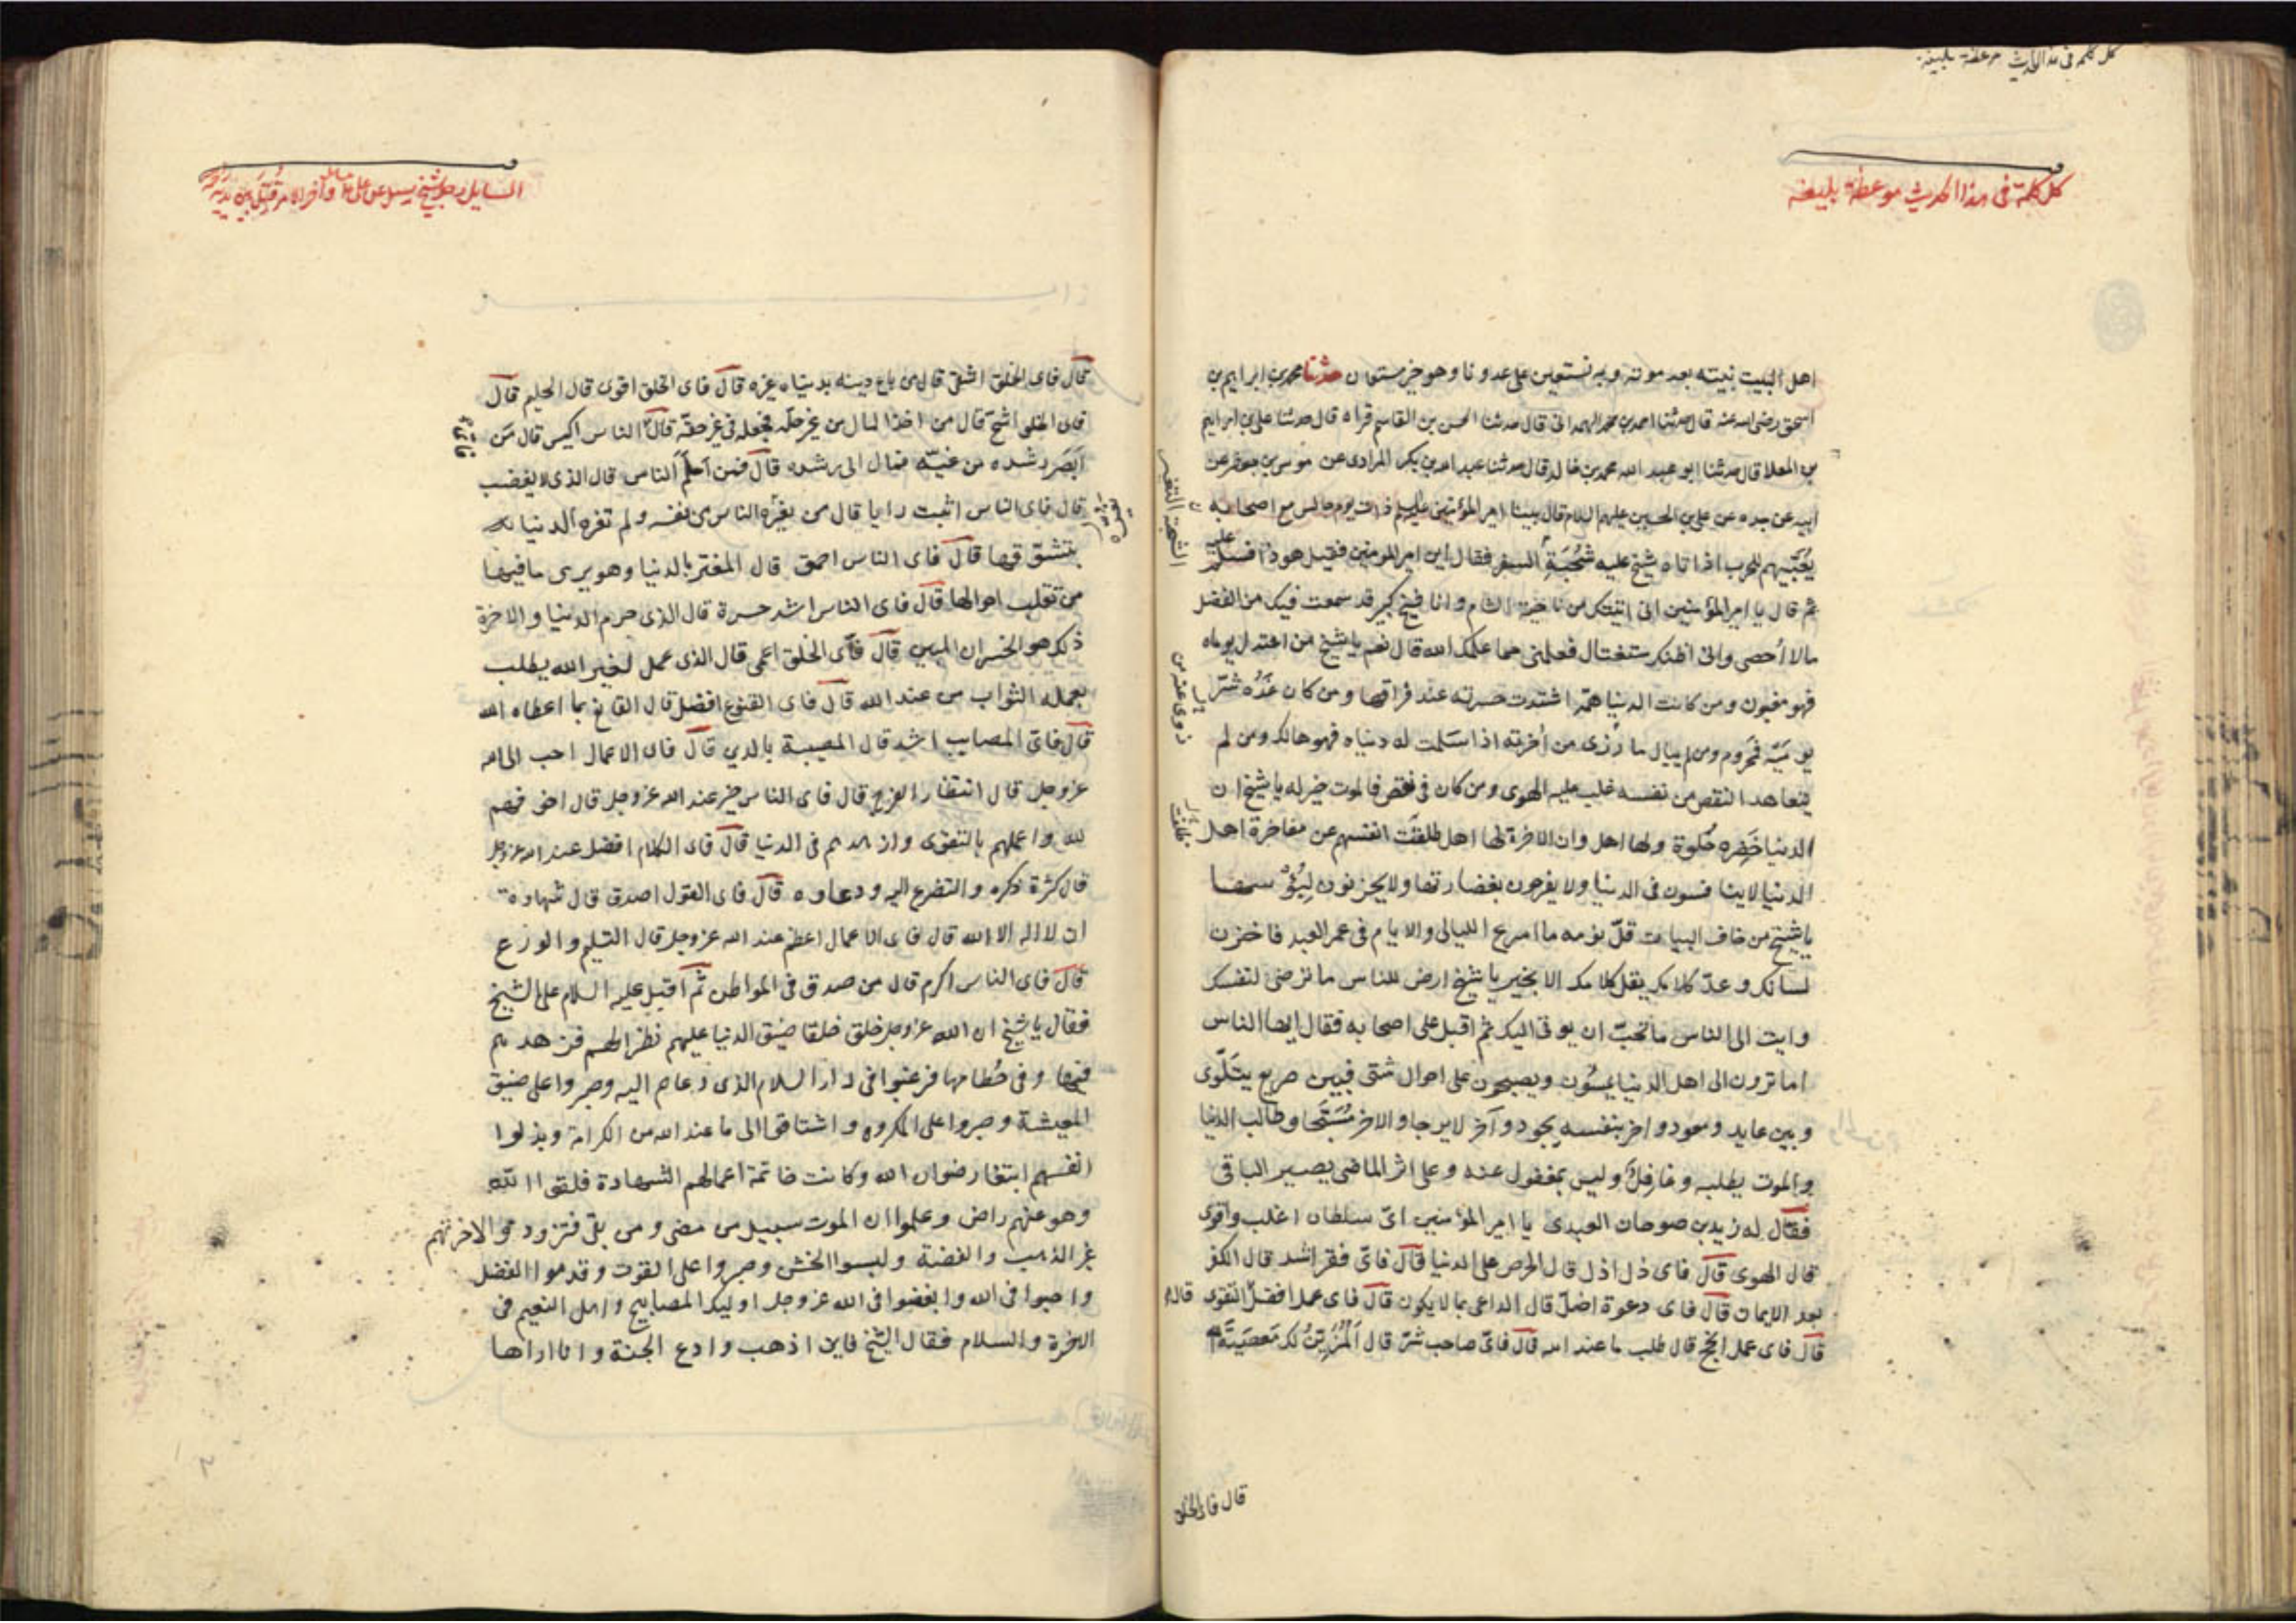 كل كلمة فى هذا الحديث موعظة بليغة
كل كلمة فى هذا الحديث موعظة بليغة
اهل البيت نبيته بعد موته وبه نستعين على عدونا وهو خير مستعان حدثنا محمد بن ابراهيم بن
اسحق رضى الله عنه قال حدثنا احمد بن محمد الهمدانى قال حدثنا الحسن بن القاسم قراه قال حدثنا على بن ابراهيم
بن المعلا قال حدثنا ابو عبد الله محمد بن خالد قال حدثنا عبد الله بن بكر المرادى عن موسى بن جعفر عن
ابيه عن جده عن على بن الحسين عليهم السلام قال بينا امير المؤمنين عليه السلم ذات يوم جالس مع اصحابه
يعبّيهم للحرب اذا تاه شيخ عليه شحبة السفر فقال اين امير المومنين فقيل هوذا فسلم عليه
ثم قال يا امير المؤمنين انى اتيتك من ناحية الشام وانا شيخ كبير قد سمعت فيك من الفضل
مالا اُحصى وانى اظنك ستغتال فعلمنى مما علمك الله قال نعم يا شيخ من اعتدل يوماه
فهو مغبون ومن كانت الدنيا همّه اشتدت حسرته عند فراقها ومن كان غَدُه شرّ
يوميّه فمحروم ومن لم يبال ما رزى من اخرته اذا سَلمت له دنياه فهو هالك ومن لم
يتعاهد النقص من نفسه غلب عليه الهوى ومن كان فى نقص فالموت خير له يا شيخ ان
الدنيا خَضِره حُلوة ولها اهل وان الاخرة لها اهل ظلفت انفسهم عن مفاخرة اهل
الدنيا لا يتنافسون فى الدنيا ولا يفرحون بغضارتها ولا يحزنون لِبُؤسها
يا شيخ من خاف البيات قلّ نومه ما اسرع الليالى والايام فى عمر العبد فاخزن
لسانك وعدّ كلامك يقل كلامك الا بخير يا شيخ ارض للناس ما ترضى لنفسك
وايت الى الناس ما تحبّ ان يوتى اليك ثم اقبل على اصحابه فقال ايها الناس
اما ترون الى اهل الدنيا يمسُون ويصبحون على احوال شتى فبين صريع يتلَوّى
وبين عايد ومعود واخر بنفسه يجود وآخر لا يرجا والاخر مُسَجّى وطالب الدنيا
والموت يطلبه وغافل وليس بمغفول عنه وعلى اثر الماضى يصير الباقى
فقال له زيد بن صوحان العبدى يا امير المؤمنين اىّ سلطان اغلب واقوى
قال الهوى قال فاى ذل اذل قال الحرص على الدنيا قال فاىّ فقر اشد قال الكفر
بعد الايمان قال فاى دعوة اضلّ قال الداعى بما لا يكون قال فاى عمل افضل قال التقوى
قال فاى عمل انجح قال طلب ما عند الله قال فاىّ صاحب شرّ قال اَلْمُزيّنُ لك مَعصَيَةَ الله
قال فاى الخلق
قال فاى الخلق اشقى قال من باع دينه بدنياه غيره قال فاى الخلق اقوى قال الحليم قال
فاى الخلق اشحّ قال من اخذ المال من غير حلّه فجعله فى غير حقّه قال فاى الناس اكيس قال مَن
اَبصَر رشده من غيّه فمال الى رشده قال فمن اَحلم الناس قال الذى لا يغضب
قال فاى الناس اثبت رايا قال من لم يغرّه الناس من نفسه ولم تغره الدنيا
بتشوّقها قال فاى الناس احمق قال المغتر بالدنيا وهو يرى ما فيها
من تقلب احوالها قال فاى الناس اشد حسرة قال الذى حرم الدنيا والاخرة
ذلك هو الخسران المبين قال فاىّ الخلق اعمى قال الذى عمل لغير الله يطلب
بعمله الثواب من عند الله قال فاى القنوع افضل قال القانع بما اعطاه الله
قال فاىّ المصايب اشد قال المصيبة بالدين قال فاى الاعمال احب الى الله
عزوجل قال انتظار الفرج قال فاى الناس خير عند الله عزوجل قال اخوفهم
لله واعملهم بالتقوى وازهدهم فى الدنيا قال فاى الكلام افضل عند الله عزوجل
قال كثرة ذكره والتضرع اليه ودعاوه قال فاى القول اصدق قال شهادة
ان لا اله الا الله قال فاى الاعمال اعظم عند الله عزوجل قال التسليم والورع
قال فاى الناس اكرم قال من صدق فى المواطن ثم اقبل عليه السلام على الشيخ
فقال يا شيخ ان الله عزوجل خلق خلقا ضيق الدنيا عليهم نظرا لهم فزهدهم
فيها وفى حُطامها فرغبوا فى دار السلام الذى دعاهم اليه وصبروا على ضيق
المعيشة وصبروا على المكروه واشتاقوا الى ما عند الله من الكرامة وبذلوا
انفسهم ابتغا رضوان الله وكانت خاتمة اعمالهم الشهادة فلقوا الله
وهو عنهم راض وعلموا ان الموت سبيل من مضى ومن بقى فتزودوا لاخرتهم
غير الذهب والفضة ولبسوا الخشن وصبروا على القوت وقدموا الفضل
واحبوا فى الله وابغضوا فى الله عزوجل اوليك المصابيح واهل النعيم فى
الاخرة والسلام فقال الشيخ فاين اذهب وادع الجنة وانا اراها